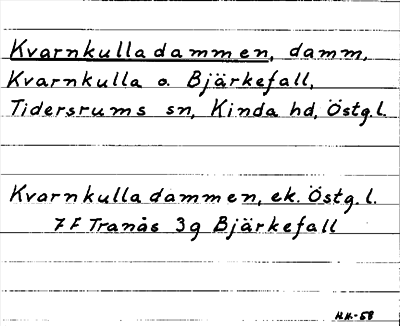 Kvarnkulladammen, damm,
Kvarnkulla o. Bjärkefall,
Tidersrums sn, Kinda hd, Östg.l.
Kvarnkulladammen, ek. Östg.l.
7 F Tranås 3g Bjärkefall
H.H.-58